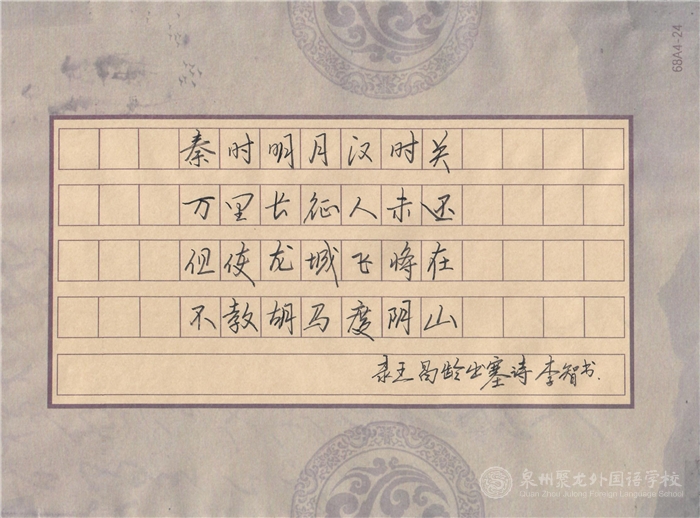 68A4-24
秦时明月汉时关
万里长征人未还
但使龙城飞将在
不教胡马度阴山
录王昌龄出塞诗 李智书.
泉州聚龙外国语学校
Quan Zhou Julong Foreign Language School